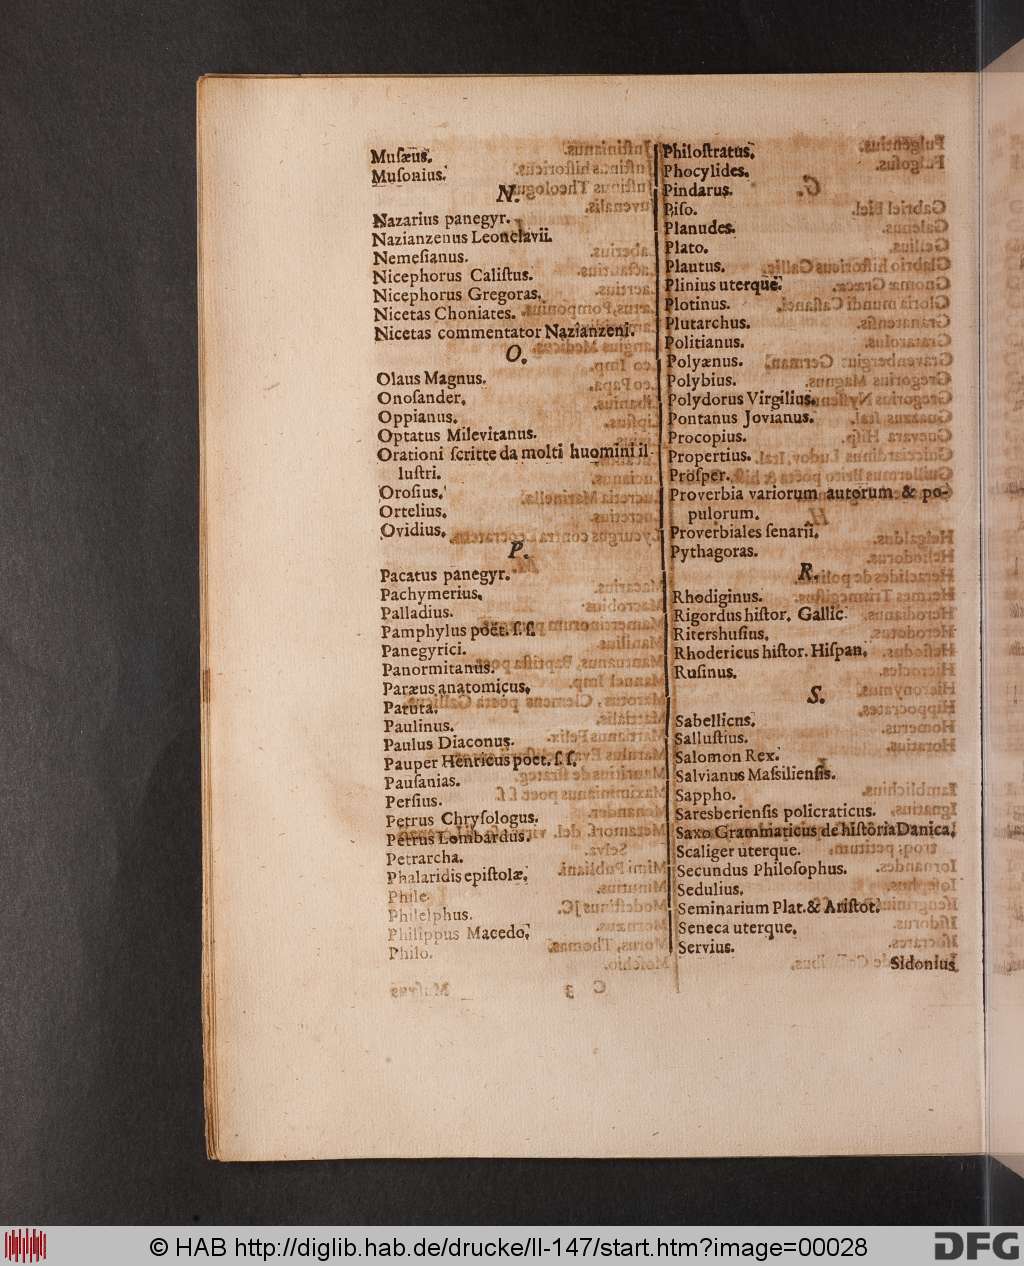 Musæus.
Musonius.
N.
Nazarius panegyr.
Nazianzenus Leonclavii.
Nemesianus.
Nicephorus Calistus.
Nicephorus Gregoras.
Nicetas Choniates.
Nicetas commentator Nazianzeni.
O.
Olaus Magnus.
Onosander.
Oppianus.
Optatus Milevitanus.
Orationi scritte da molti huomini il-
lustri.
Orosius.
Ortelius.
Ovidius.
P.
Pacatus panegyr.
Pachymerius.
Palladius.
Pamphylus poët. s. s.
Panegyrici.
Panormitanus.
Paræus anatomicus.
Paruta.
Paulinus.
Paulus Diaconus.
Pauper Henricus poet. s. s.
Pausanias.
Persius.
Petrus Chrysologus.
Petrus Lombardus.
Petrarcha.
Phalaridis epistolæ.
Phile.
Philelphus.
Philippus Macedo.
Philo.
Philostratus.
Phocylides.
Pindarus.
Piso.
Planudes.
Plato.
Plautus.
Plinius uterque.
Plotinus.
Plutarchus.
Politianus.
Polyænus.
Polybius.
Polydorus Virgilius.
Pontanus Jovianus.
Procopius.
Propertius.
Prosper.
Proverbia variorum autorum & po-
pulorum.
Proverbiales senarii.
Pythagoras.
R.
Rhodiginus.
Rigordus histor. Gallic.
Ritershusius.
Rhodericus histor. Hispan.
Rufinus.
S.
Sabellicus.
Sallustius.
Salomon Rex.
Salvianus Massiliensis.
Sappho.
Saresberiensis policraticus.
Saxo Grammaticus de historia Danica.
Scaliger uterque.
Secundus Philosophus.
Sedulius.
Seminarium Plat. & Aristot.
Seneca uterque.
Servius.
Sidonius
© HAB http://diglib.hab.de/drucke/li-147/start.htm?image=00028
DFG